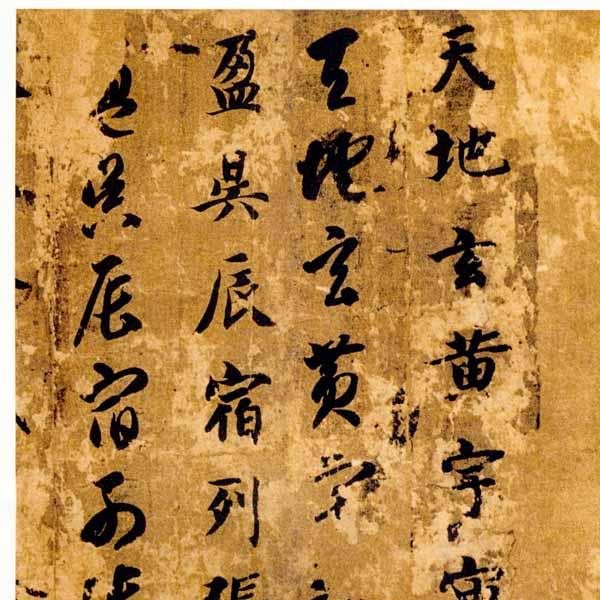 天地玄黄宇宙
天地玄黄宇
盈昃辰宿列張
盈昃辰宿列張